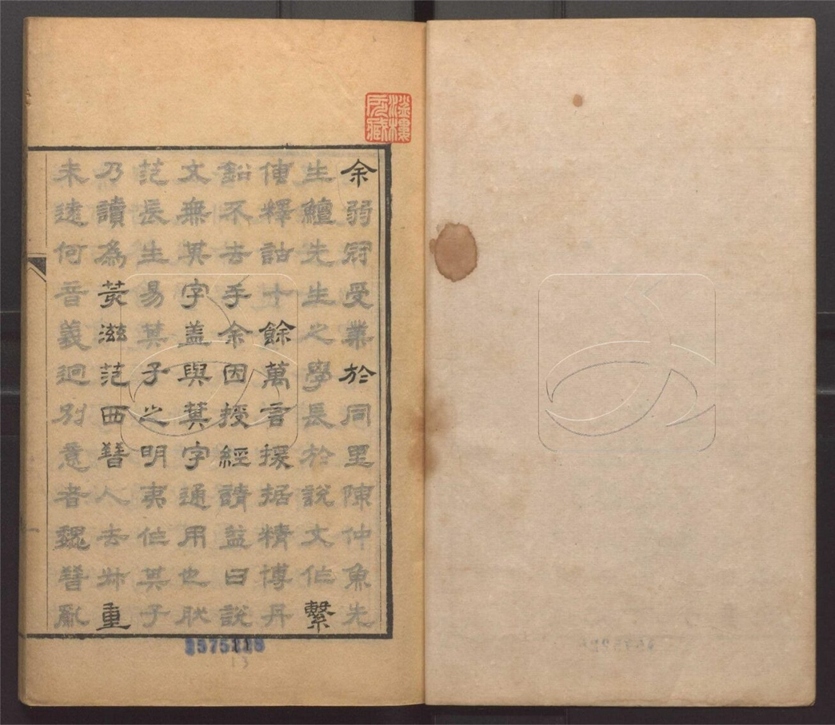 余弱冠受業於同里陳仲魚先
生鱣先生之學長於說文作繫
傳釋詁十餘萬言援据精博丹
鉛不去手余因授經請益曰說
文無其字蓋與萁字通用也耿
范長生易萁子之明夷作其子
乃讀為荄滋范西晉人去
重
未遠何音義迥別意者魏晉亂
1575228
13